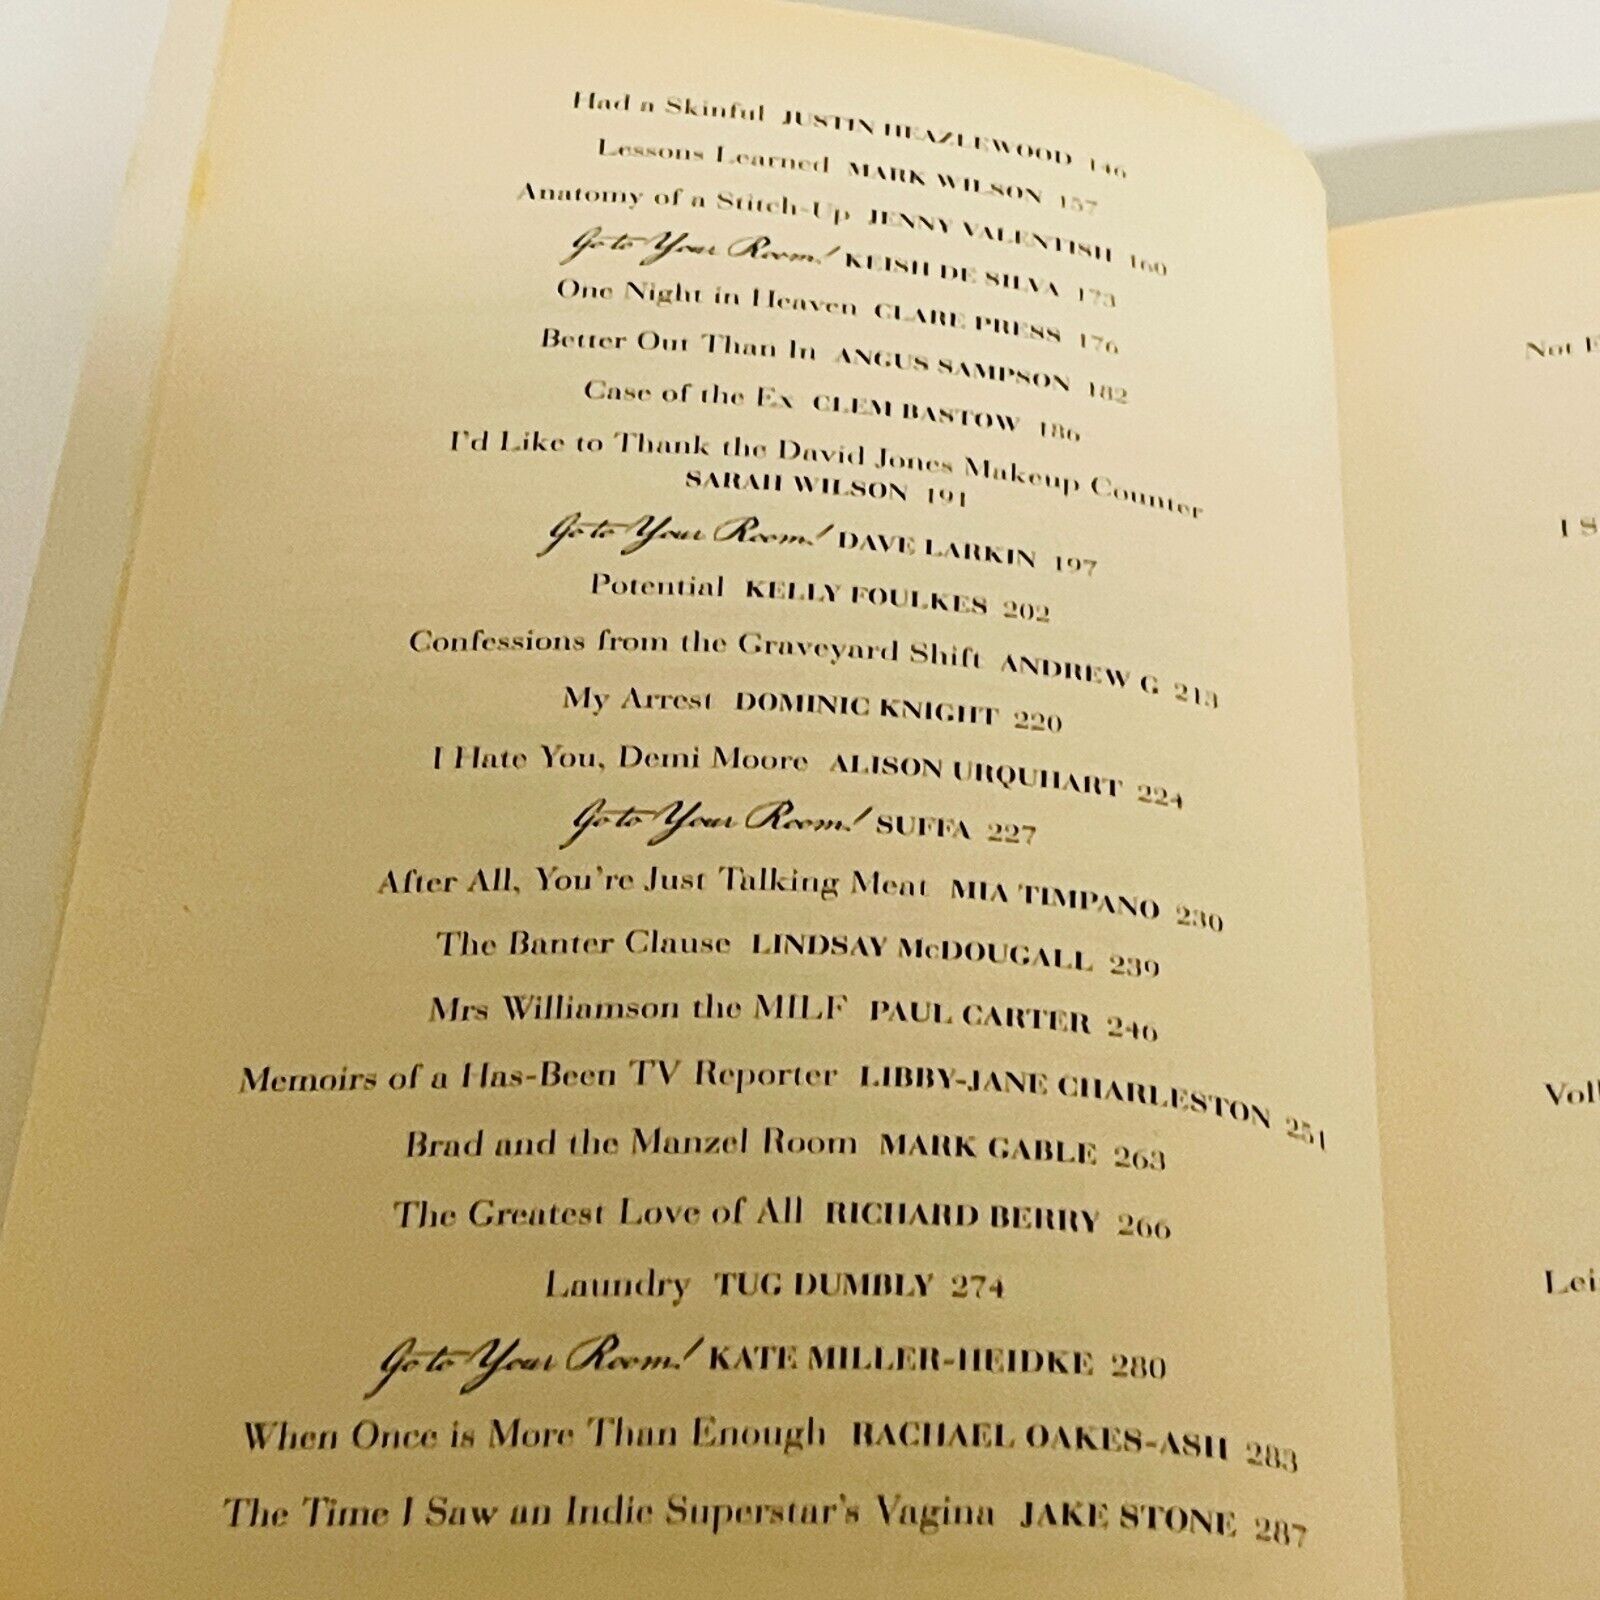 Had a Skinful JUSTIN HEAZLEWOOD 146
Lessons Learned MARK WILSON 157
Anatomy of a Stitch-Up JENNY VALENTISH 160
Go to Your Room! KEISH DE SILVA 173
One Night in Heaven CLARE PRESS 176
Better Out Than In ANGUS SAMPSON 182
Case of the Ex CLEM BASTOW 186
I'd Like to Thank the David Jones Makeup Counter
SARAH WILSON 191
Go to Your Room! DAVE LARKIN 197
Potential KELLY FOULKES 202
Confessions from the Graveyard Shift ANDREW G 213
My Arrest DOMINIC KNIGHT 220
I Hate You, Demi Moore ALISON URQUHART 224
Go to Your Room! SUFFA 227
After All, You're Just Talking Meat MIA TIMPANO 230
The Banter Clause LINDSAY McDOUGALL 239
Mrs Williamson the MILF PAUL CARTER 246
Memoirs of a Has-Been TV Reporter LIBBY-JANE CHARLESTON 251
Brad and the Manzel Room MARK GABLE 263
The Greatest Love of All RICHARD BERRY 266
Laundry TUG DUMBLY 274
Go to Your Room! KATE MILLER-HEIDKE 280
When Once is More Than Enough RACHAEL OAKES-ASH 283
The Time I Saw an Indie Superstar's Vagina JAKE STONE 287
Not
I